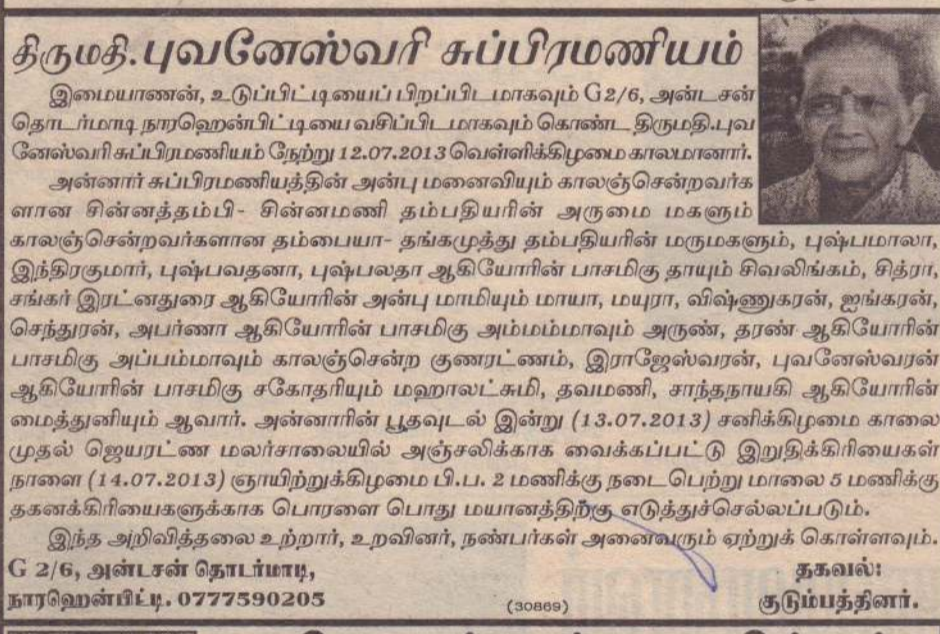 திருமதி.புவனேஸ்வரி சுப்பிரமணியம்
இமையாணன், உடுப்பிட்டியைப் பிறப்பிடமாகவும் G2/6, அன்டசன்
தொடர்மாடி நாரஹென்பிட்டியை வசிப்பிடமாகவும் கொண்ட திருமதி.புவ
னேஸ்வரி சுப்பிரமணியம் நேற்று 12.07.2013 வெள்ளிக்கிழமை காலமானார்.
அன்னார் சுப்பிரமணியத்தின் அன்பு மனைவியும் காலஞ்சென்றவர்க
ளான சின்னத்தம்பி- சின்னமணி தம்பதியரின் அருமை மகளும்
காலஞ்சென்றவர்களான தம்பையா- தங்கமுத்து தம்பதியரின் மருமகளும், புஷ்பமாலா,
இந்திரகுமார், புஷ்பவதனா, புஷ்பலதா ஆகியோரின் பாசமிகு தாயும் சிவலிங்கம், சித்ரா,
சங்கர் இரட்னதுரை ஆகியோரின் அன்பு மாமியும் மாயா, மயுரா, விஷ்ணுகரன், ஐங்கரன்,
செந்துரன், அபர்ணா ஆகியோரின் பாசமிகு அம்மம்மாவும் அருண், தரண் ஆகியோரின்
பாசமிகு அப்பம்மாவும் காலஞ்சென்ற குணரட்ணம், இராஜேஸ்வரன், புவனேஸ்வரன்
ஆகியோரின் பாசமிகு சகோதரியும் மஹாலட்சுமி, தவமணி, சாந்தநாயகி ஆகியோரின்
மைத்துனியும் ஆவார். அன்னாரின் பூதவுடல் இன்று (13.07.2013) சனிக்கிழமை காலை
முதல் ஜெயரட்ண மலர்சாலையில் அஞ்சலிக்காக வைக்கப்பட்டு இறுதிக்கிரியைகள்
நாளை (14.07.2013) ஞாயிற்றுக்கிழமை பி.ப. 2 மணிக்கு நடைபெற்று மாலை 5 மணிக்கு
தகனக்கிரியைகளுக்காக பொரளை பொது மயானத்திற்கு எடுத்துச்செல்லப்படும்.
இந்த அறிவித்தலை உற்றார், உறவினர், நண்பர்கள் அனைவரும் ஏற்றுக் கொள்ளவும்.
G 2/6, அன்டசன் தொடர்மாடி, தகவல்:
நாரஹென்பிட்டி. 0777590205 (30869) குடும்பத்தினர்.